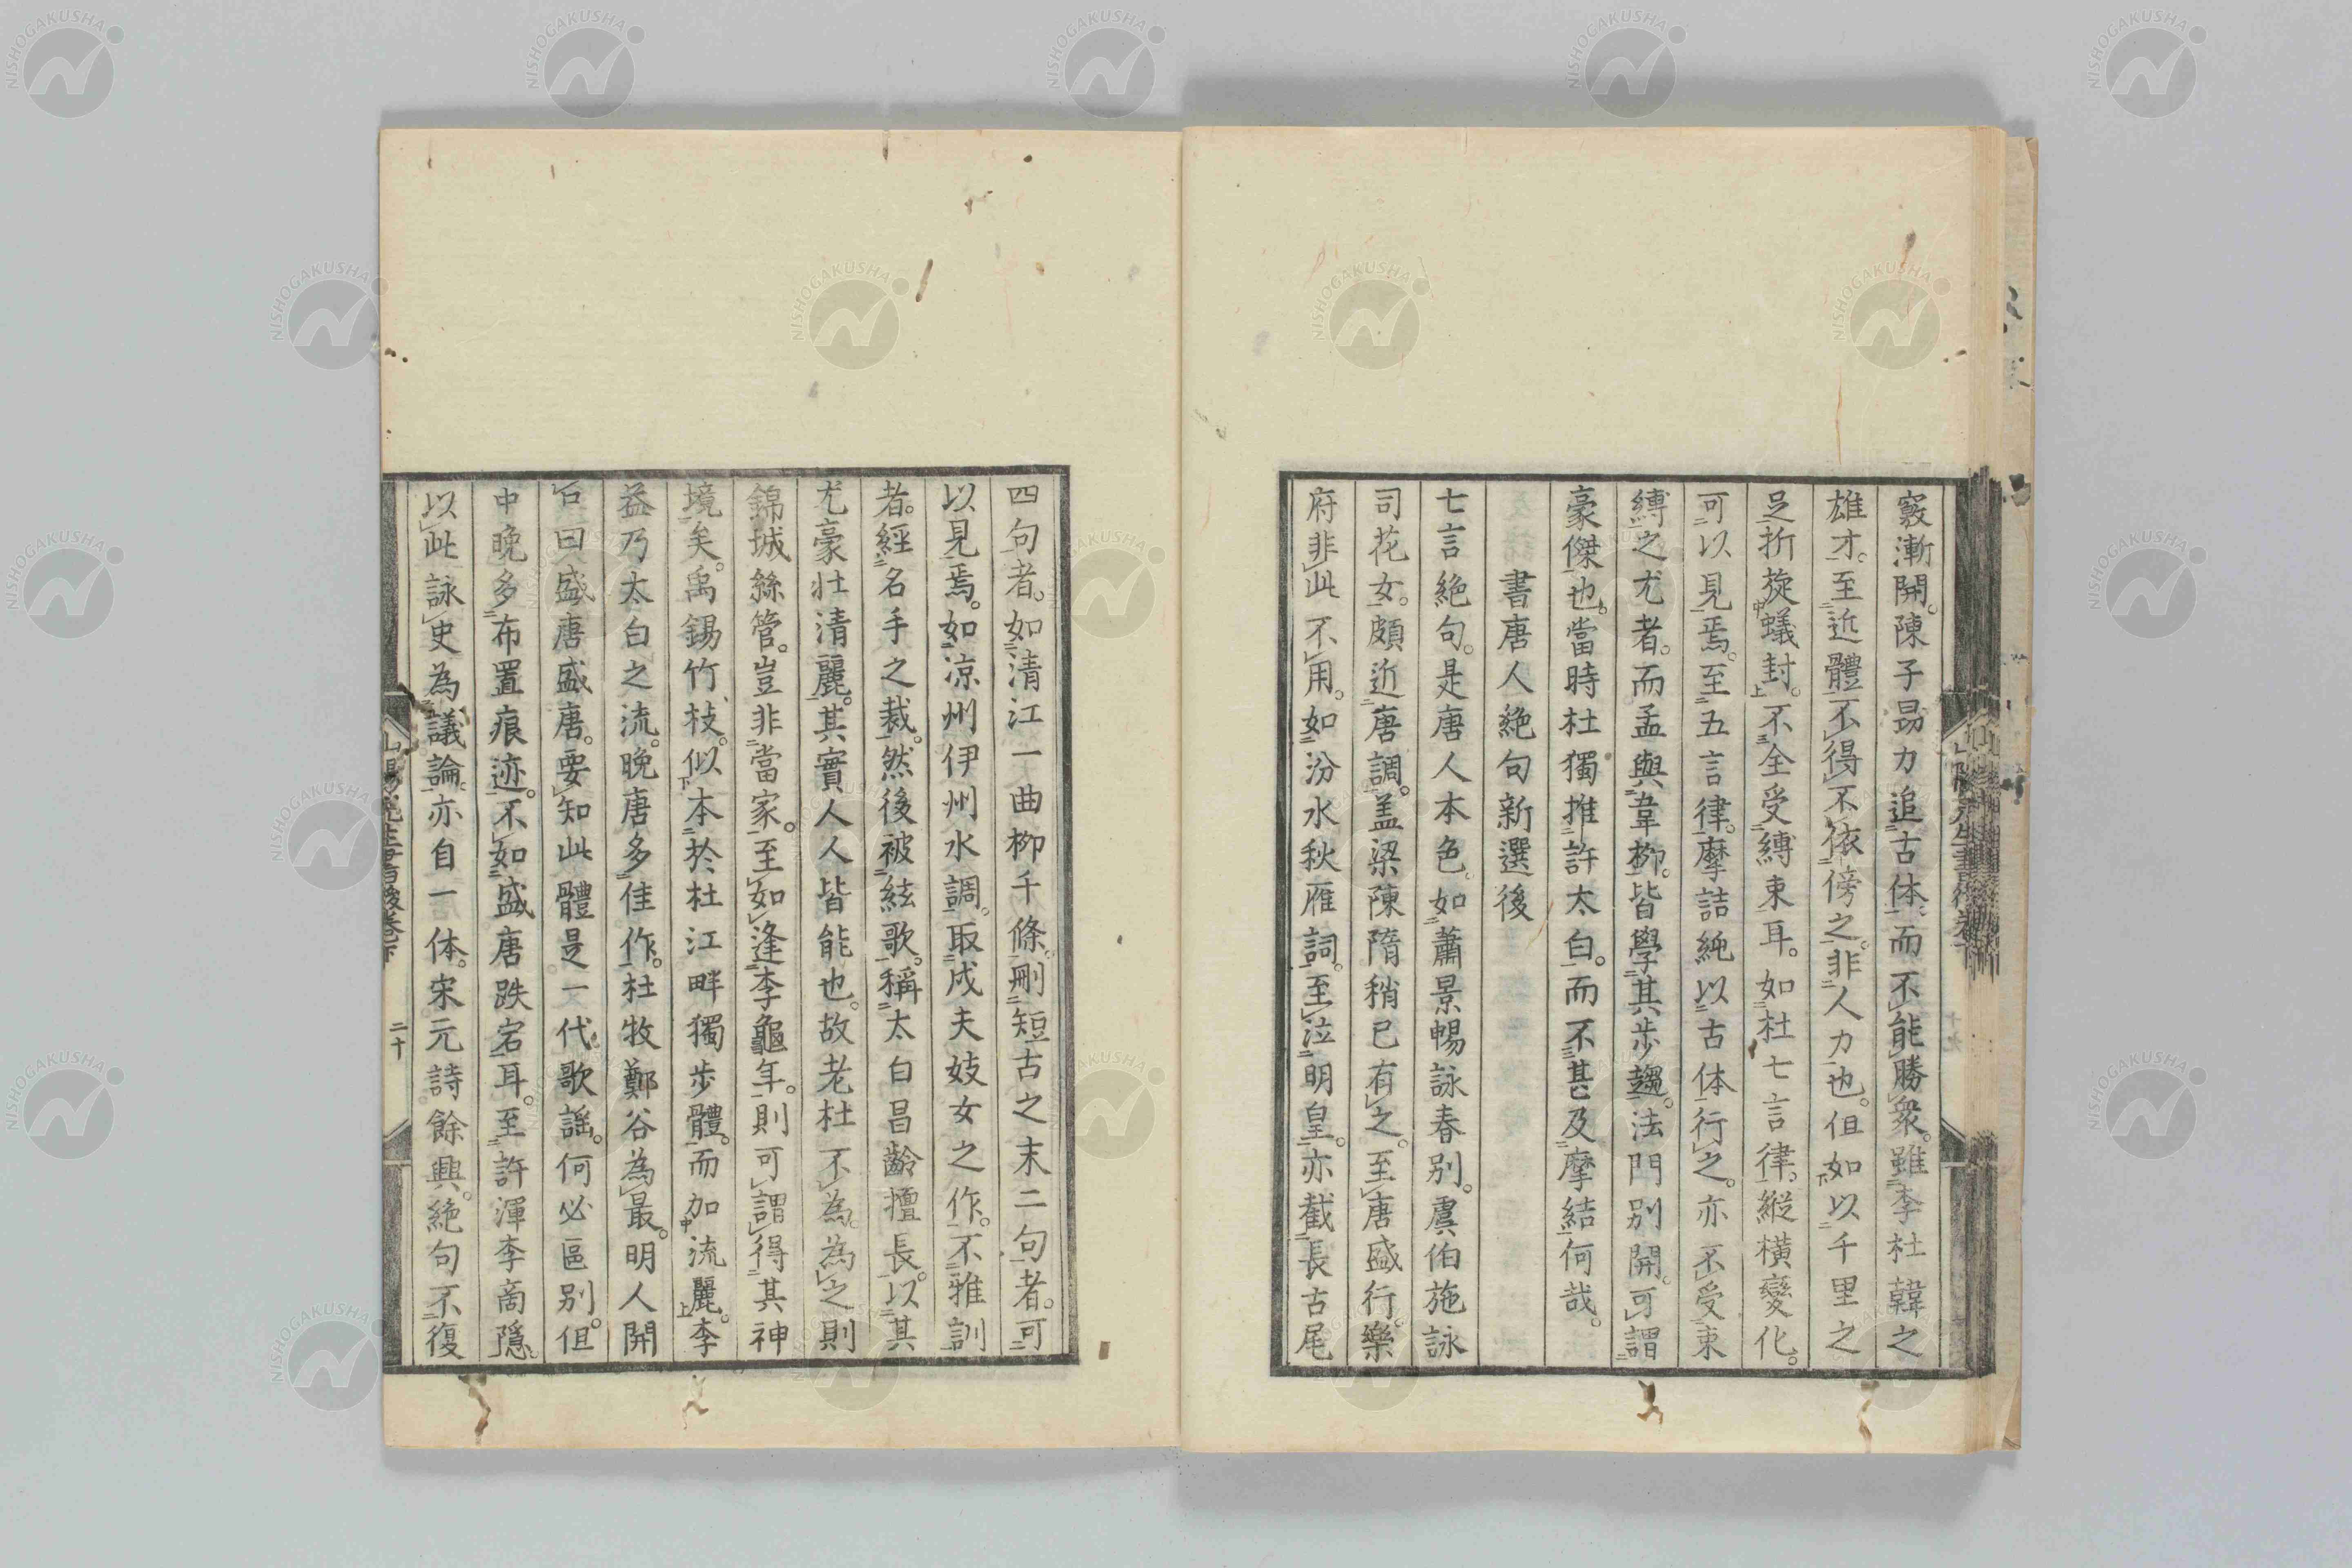 竅漸開。陳子昂力追古体、而不能勝衆。雖李杜韓之
雄才。至近體不得不依傍之。非人力也。但如以千里之
足折旋蟻封。不全受縛束耳。如杜七言律。縦横變化。
可以見焉。至五言律。摩詰純以古体行之。亦不受束
縛之尤者。而孟與韋柳。皆學其歩趨。法門別開。可謂
豪傑也。當時杜獨推許太白。而不甚及摩結何哉。
書唐人絶句新選後
七言絶句。是唐人本色。如蕭景暢詠春別。虞伯施詠
司花女。頗近唐調。盖梁陳隋稍已有之。至唐盛行。樂
府非此不用。如汾水秋雁詞。至泣明皇。亦截長古尾
四句者。如清江一曲柳千條。刪短古之末二句者。可
以見焉。如凉州伊州水調。取戍夫妓女之作。不雅訓
者。經名手之裁。然後被絃歌。稱太白昌齡擅長。以其
尤豪壮清麗。其實人人皆能也。故老杜不為。為之則
錦城絲管。豈非當家。至如逢李龜年。則可謂得其神
境矣。禹錫竹枝。似本於杜江畔獨歩體。而加流麗。李
益乃太白之流。晩唐多佳作。杜牧鄭谷為最。明人開
口曰盛唐盛唐。要知此體是一代歌謡。何必區別。但
中晩多布置痕迹。不如盛唐跌宕耳。至許渾李商隱。
以此詠史為議論。亦自一体。宋元詩餘興。絶句不復
二十